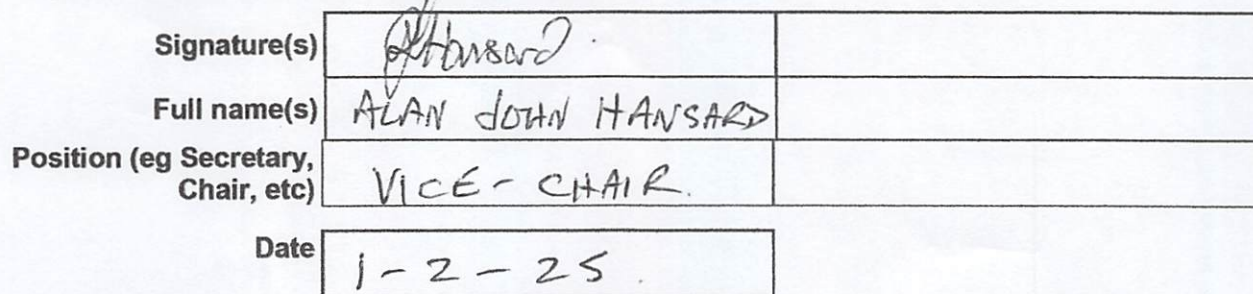 Signature(s) AJHansard
Full name(s) ALAN JOHN HANSARD
Position (eg Secretary,
Chair, etc) VICE - CHAIR.
Date 1 - 2 - 25.